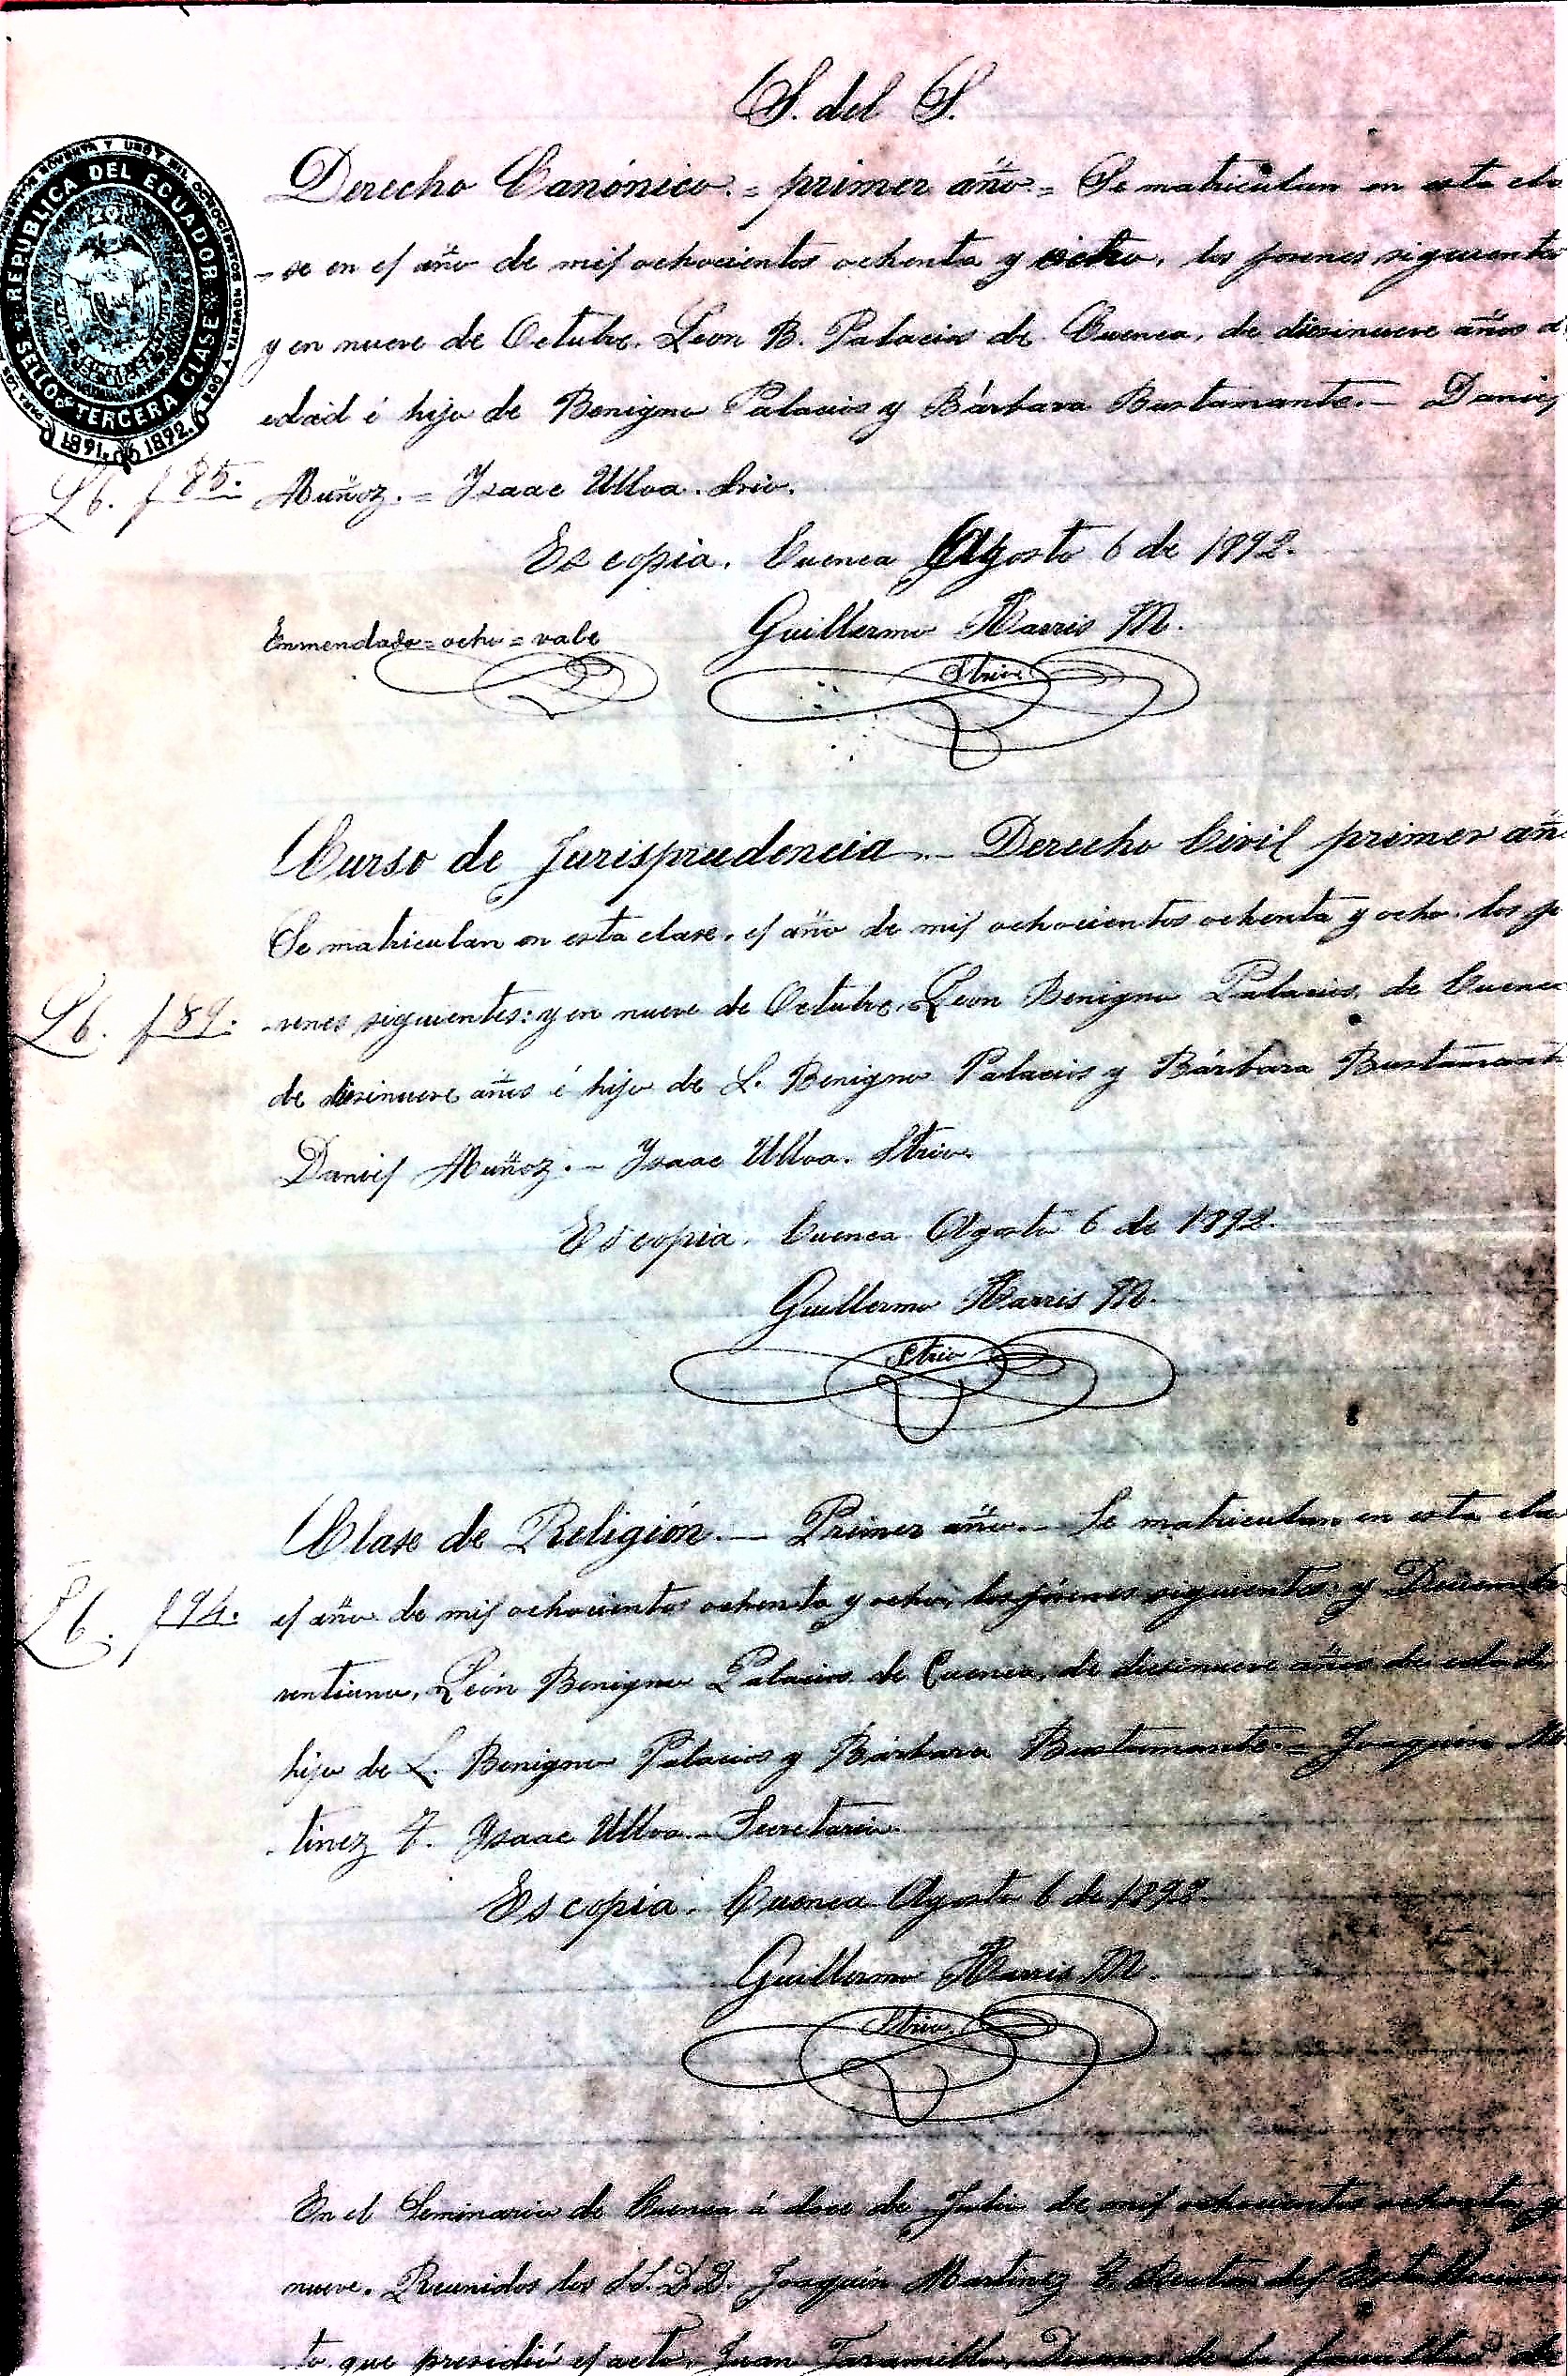 S. del S.
REPUBLICA DEL ECUADOR
SELLO DE TERCERA CLASE
1891. 1892.
Derecho Canónico. = primer año = Se matriculan en esta cla
-se en el año de mil ochocientos ochenta y ocho, los jovenes siguientes
y en nueve de Octubre. Leon B. Palacios de Cuenca, de diesinueve años d
edad é hijo de Benigno Palacios y Bárbara Bustamante. - Daniel
L6. f 85. Muñoz. = Isaac Ulloa. Srio.
Es copia. Cuenca Agosto 6 de 1892.
Enmendado = ocho = vale Guillermo Harris M.
Strio
Curso de Jurisprudencia. - Derecho Civil primer año
Se matriculan en esta clase, el año de mil ochocientos ochenta y ocho. los jo
L6. f 89. venes siguientes: y en nueve de Octubre, Leon Benigno Palacios, de Cuenca
de diesinueve años é hijo de L. Benigno Palacios y Bárbara Bustamante
Daniel Muñoz. - Isaac Ulloa. Strio.
Es copia. Cuenca Agosto 6 de 1892.
Guillermo Harris M.
Strio
Clase de Religión. - Primer año. - Se matriculan en esta cla
L6. f 94. el año de mil ochocientos ochenta y ocho, los jóvenes siguientes: y Diciembre
ventiuno, León Benigno Palacios de Cuenca, de diesinueve años de edad é
hijo de L. Benigno Palacios y Bárbara Bustamante. = Joaquin Mar
tinez T. Isaac Ulloa. - Secretario.
Es copia. Cuenca Agosto 6 de 1892.
Guillermo Harris M.
Strio
En el Seminario de Cuenca á doce de Julio de mil ochocientos ochenta y
nueve. Reunidos los SS. DD. Joaquín Martinez T. Rector del Establecimien
to que presidió el acto, Juan Jaramillo, Decano de la facultad de